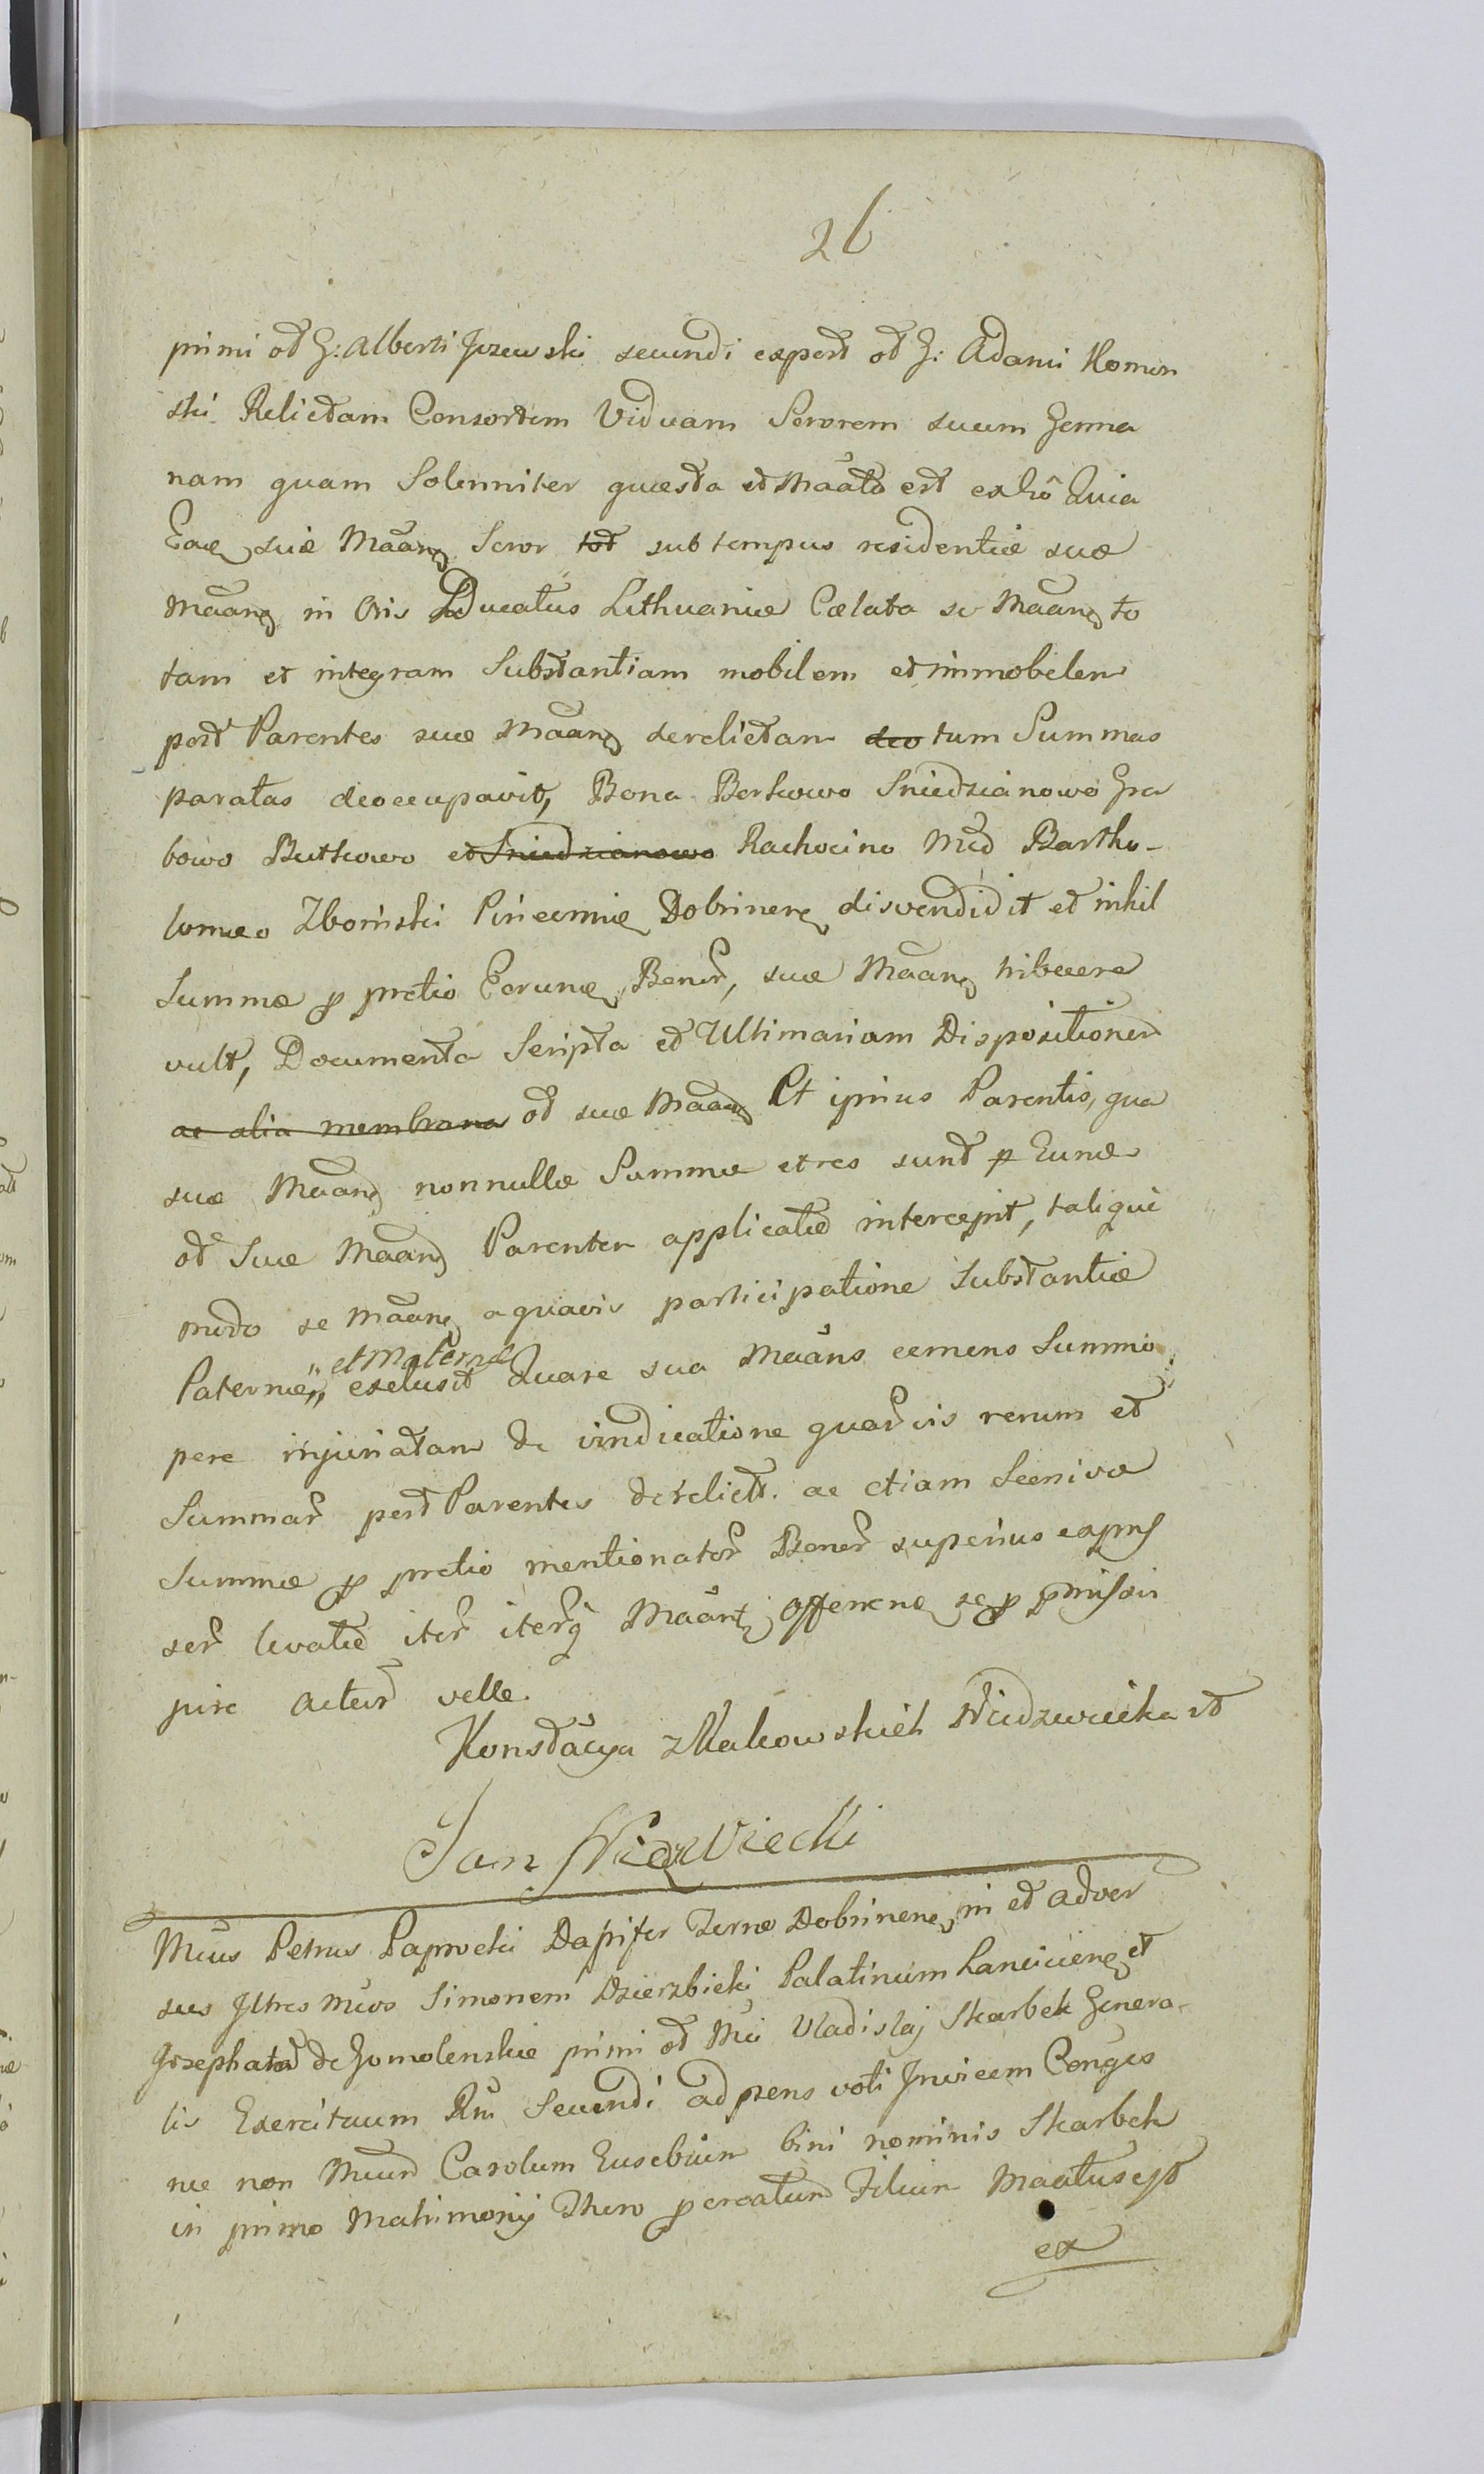 26
primi od G: Alberti Jezewski secundi expost od G: Adami Komin
ski Relictam Consortem Viduam Sororem suam Germa
nam quam Solenniter questa et Maãta est ex hõ Quia
Eaq suæ Maãnq Soror tot sub tempus residentiæ suæ
Maãnq in Oris Ducatus Lithuaniæ Cælata se Maãnq to
tam et integram Substantiam mobilem et immobilem
post Parentes suæ Maãnq derelictam deo tum Summas
paratas deoccupavit, Bona Borkowo Sniedzianowo Gra
bowo Butkowo et Sniedzianowo Rachocino Mcõ Bartho-
lomæo Zboinski Pincernæ Dobrinenq disvendidit et nihil
Summæ p pretio Eorunq Bonor, suæ Maãnq tribuere
vult, Documenta Scripta et Ultimariam Dispositionem
ac alia membrana od suæ Maãnq Pt ipsius Parentis, qua
suæ Maãnq nonnullæ Summæ et res sunt p Eunq
od Suæ Maãnq Parentem applicatæ intercepit, talique
modo se Maãnq a quavis participatione Substantiæ
Paternæ,, et Maternæ exclusit Quare sua Maãns eemens Summo
pere injuriatam de vindicatione quarvis rerum et
Summar post Parentes derelict. ac etiam Scenivæ
Summæ p pretio mentionator Bonor superius expres
ser levatæ iter iterq Maãnt, offerenq se p pmissis
jure acturõ velle.
Konstãcya z Makowskich Niedzwiecka rõ
Jan Niedzwiecki
Mcus Petrus Paprocki Dapifer Terræ Dobrinenq, in et adver
sus Jltres Mcos Simonem Dzierzbicki Palatinum Lancicienq et
Josephatã de Gomolenskie primi od Mci Vladislaj Skarbek Genera-
lis Exercituum Rni Secundi ad præns voti Jnvicem Conges
nec non Mcum Carolum Eusebium bini nominis Skarbek
in primo Matrimonij Thoro pcreatum Filium Maatus est
ex